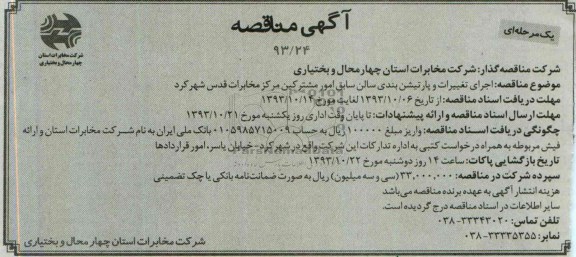 آگهی مناقصه
یک مرحله‌ای
۹۳/۲۴
شرکت مخابرات استان
چهارمحال و بختیاری
شرکت مناقصه گذار: شرکت مخابرات استان چهارمحال و بختیاری
موضوع مناقصه: اجرای تغییرات و پارتیشن بندی سالن سابق امور مشترکین مرکز مخابرات قدس شهرکرد
مهلت دریافت اسناد مناقصه: از تاریخ ۱۳۹۳/۱۰/۰۶ لغایت مورخ ۱۳۹۳/۱۰/۱۴
مهلت ارسال اسناد مناقصه و ارائه پیشنهادات: تا پایان وقت اداری روز یکشنبه مورخ ۱۳۹۳/۱۰/۲۱
چگونگی دریافت اسناد مناقصه: واریز مبلغ ۱۰۰۰۰۰ ریال به حساب ۰۱۰۵۹۸۵۷۱۵۰۰۹ بانک ملی ایران به نام شرکت مخابرات استان و ارائه
فیش مربوطه به همراه درخواست کتبی به اداره تدارکات این شرکت واقع در شهرکرد - خیابان یاسر، امور قراردادها
تاریخ بازگشایی پاکات: ساعت ۱۴ روز دوشنبه مورخ ۱۳۹۳/۱۰/۲۲
سپرده شرکت در مناقصه: ۳۳,۰۰۰,۰۰۰ (سی و سه میلیون) ریال به صورت ضمانت‌نامه بانکی یا چک تضمینی
هزینه انتشار آگهی به عهده برنده مناقصه می‌باشد
سایر اطلاعات در اسناد مناقصه درج گردیده است.
تلفن تماس: ۳۳۳۴۳۰۲۰-۰۳۸
نمابر: ۳۳۳۳۵۳۵۵-۰۳۸
شرکت مخابرات استان چهارمحال و بختیاری